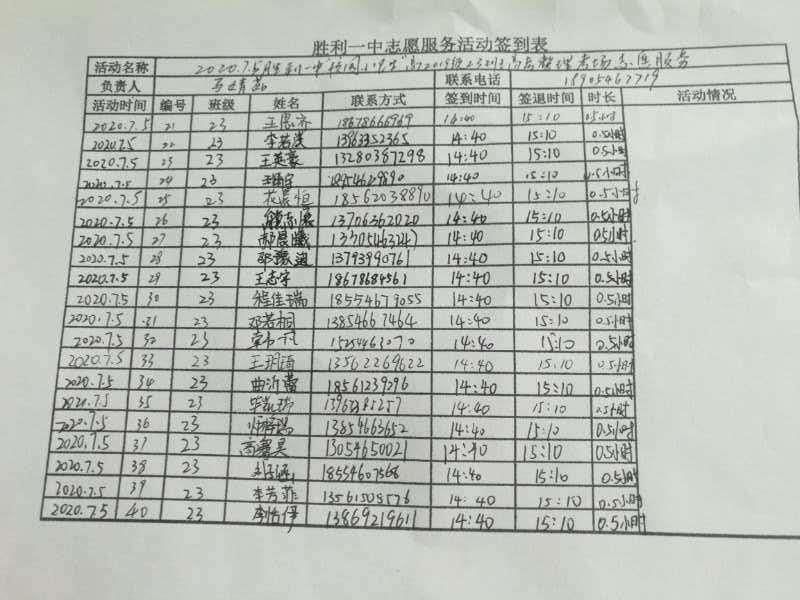 胜利一中志愿服务活动签到表
活动名称 2020.7.5 高2019级23班 高考整理考场志愿服务
负责人 联系电话 18905467719
活动时间 编号 班级 姓名 联系方式 签到时间 签退时间 时长 活动情况
2020.7.5 21 23 王思齐 18678666969 14:40 15:10 0.5小时
2020.7.5 22 23 李若溪 13863352365 14:40 15:10 0.5小时
2020.7.5 23 23 王英豪 13280387298 14:40 15:10 0.5小时
2020.7.5 24 23 18954629890 14:40 15:10 0.5小时
2020.7.5 25 23 花晨恒 18562038890 14:40 15:10 0.5小时
2020.7.5 26 23 13706362020 14:40 15:10 0.5小时
2020.7.5 27 23 郝晨曦 14:40 15:10 0.5小时
2020.7.5 28 23 13793990761 14:40 15:10 0.5小时
2020.7.5 29 23 王志宇 18678684561 14:40 15:10 0.5小时
2020.7.5 30 23 程佳瑞 18554679055 14:40 15:10 0.5小时
2020.7.5 31 23 邓若桐 13854667464 14:40 15:10 0.5小时
2020.7.5 32 23 15254463070 14:40 15:10 0.5小时
2020.7.5 33 23 王玥琦 13562269622 14:40 15:10 0.5小时
2020.7.5 34 23 曲沂蕾 18561239296 14:40 15:10 0.5小时
2020.7.5 35 23 14:40 15:10 0.5小时
2020.7.5 36 23 13854663652 14:40 15:10 0.5小时
2020.7.5 37 23 高馨昊 13054650021 14:40 15:10 0.5小时
2020.7.5 38 23 18554607568 14:40 15:10 0.5小时
2020.7.5 39 23 李芳菲 13561508576 14:40 15:10 0.5小时
2020.7.5 40 23 李怡伊 13869219611 14:40 15:10 0.5小时